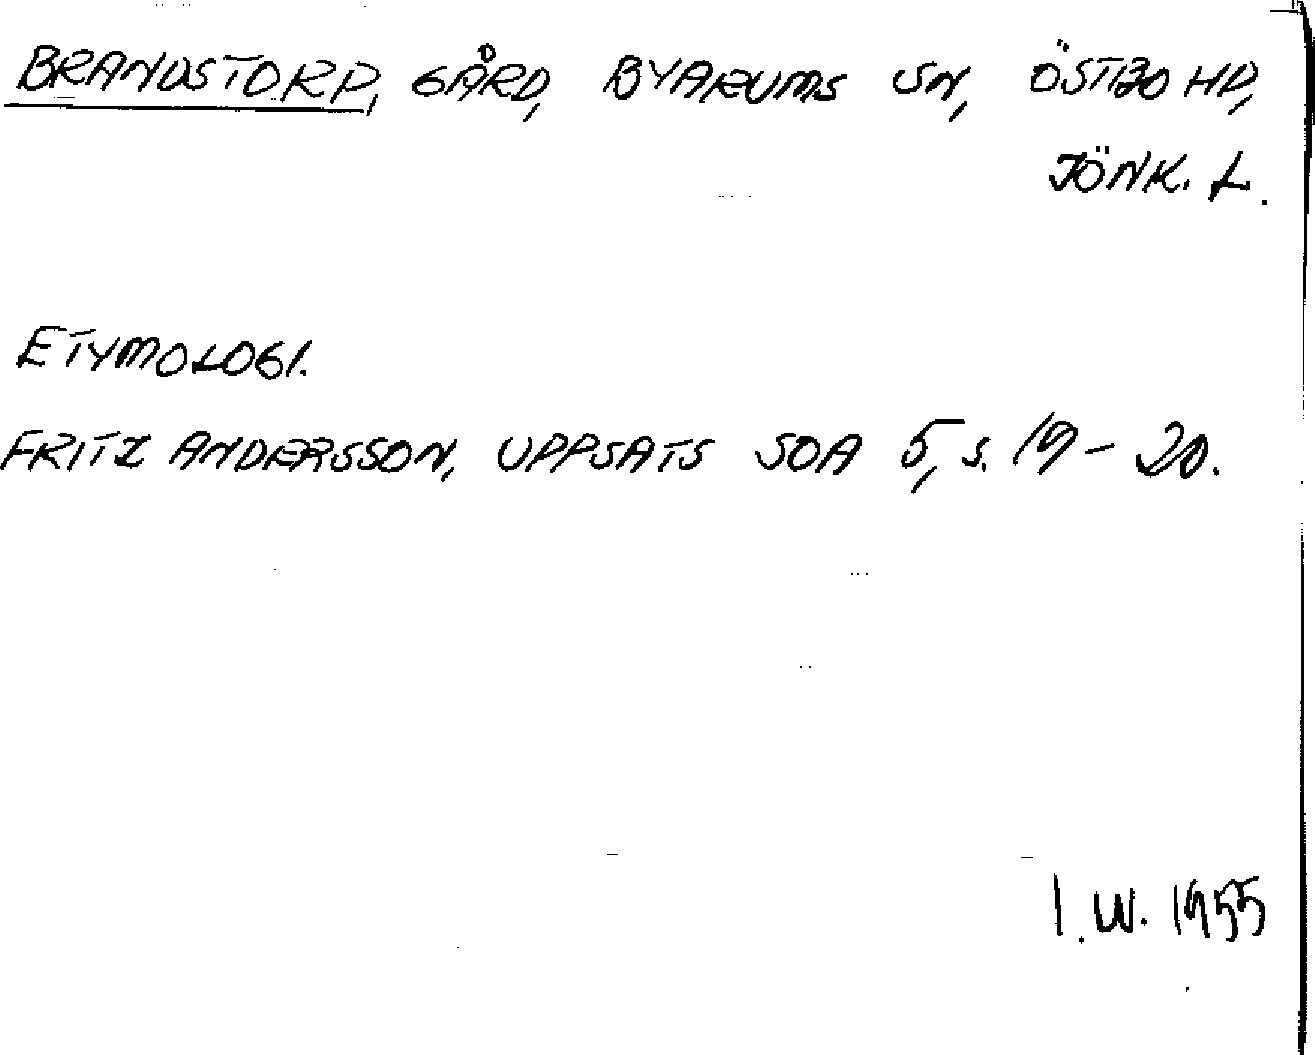 BRANDSTORP, GÅRD, BYARUMS SN, ÖSTBO HD,
JÖNK. L.
ETYMOLOGI.
FRITZ ANDERSSON, UPPSATS SOA 5, s. 19-20.
I. W. 1955